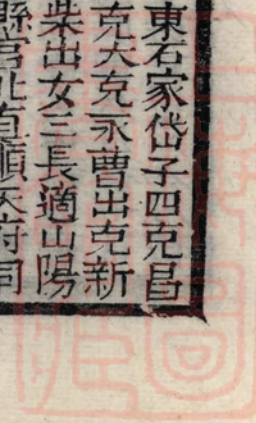 東石家岱子四克昌
克大克永曹出克新
柴出女三長適山陽
縣官北直順天府同